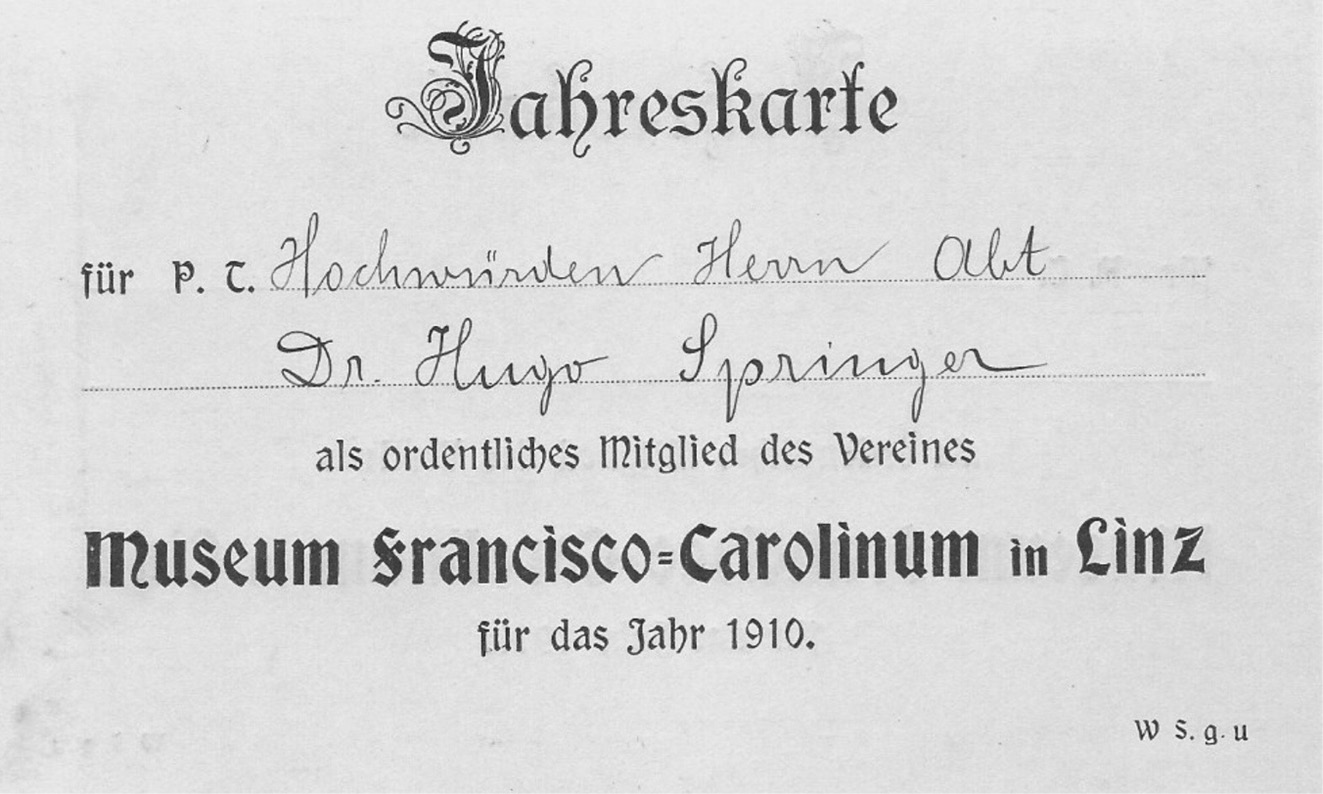 Jahreskarte
für P. T. Hochwürden Herrn Abt
Dr. Hugo Springer
als ordentliches Mitglied des Vereines
Museum Francisco=Carolinum in Linz
für das Jahr 1910.
W S. g. u